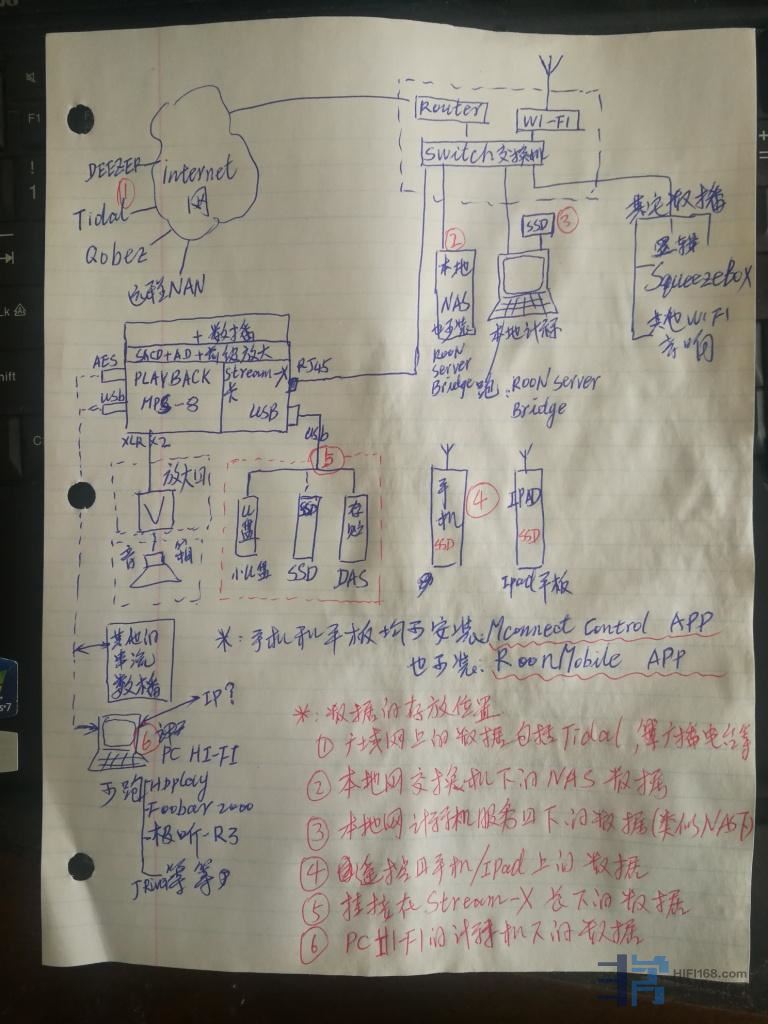 Router
WI-FI
Switch交换机
DEEZER
①
internet
网
Tidal
Qobez
远程NAN
其它数播
SqueezeBOX
其他WIFI
音响
②
本地
NAS
也可装
ROON
Server
Bridge
SSD
③
本地计算
跑:ROON server
Bridge
+数播
SACD+AD+前级放大
AES
usb
PLAYBACK
MPS-8
Stream-X
卡
RJ45
USB
usb
XLR X2
放大
V
音箱
⑤
U盘
小U盘
SSD
SSD
存贮
DAS
手机
SSD
④
IPAD
SSD
Ipad平板
※:手机和平板均可安装:Mconnect Control APP
也可装:RoonMobile APP
其他的
串流
数播
IP?
⑥
PC HI-FI
可跑
HDplay
Foobar 2000
极听-R3
JRiver等等
※:数据的存放位置
①广域网上的数据包括Tidal,等广播电台等
②本地网交换机下的NAS数据
③本地网计算机服务口下的数据(类似NAS下)
④遥控口手机/Ipad上的数据
⑤挂接在Stream-X卡下的数据
⑥PC HI-FI的计算机下的数据
HIFI168.com
F1
!
1
shift